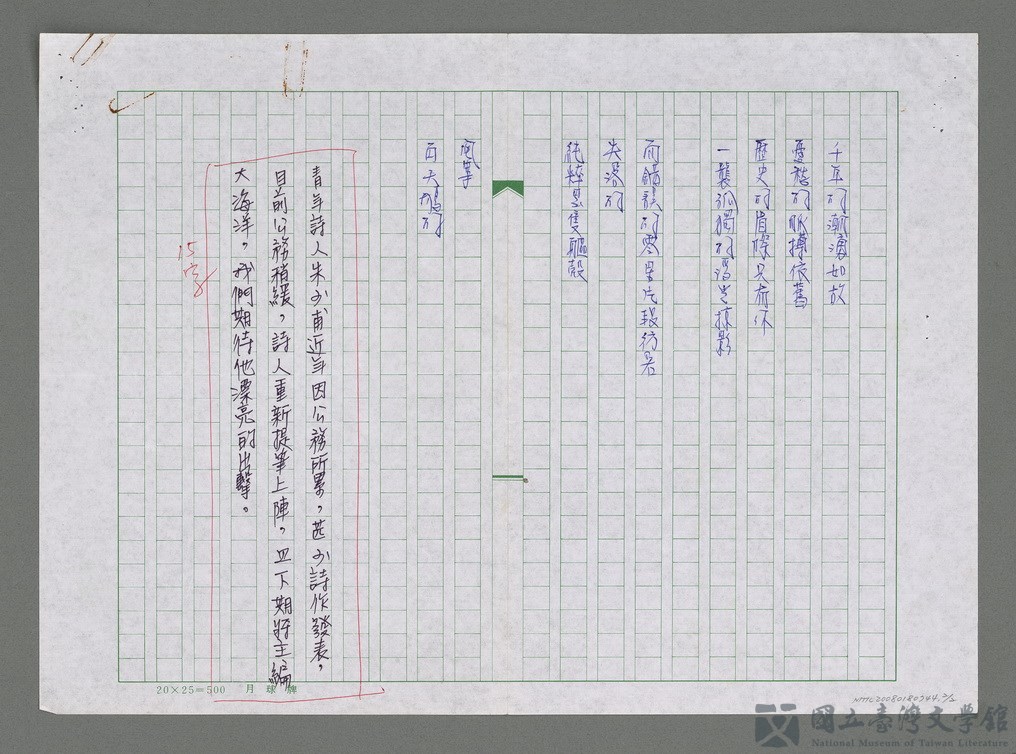 千年的潮湧如故
憂愁的脈搏依舊
歷史的眉條只有你
一襲孤獨的浮生掠影
而錯誤的零星片段彷若
失落的
純粹是隻軀殼
風箏
而天鵝的
青年詩人朱少甫近年因公務所累，甚少詩作發表，
目前公務稍緩，詩人重新提筆上陣，且下期將主編
大海洋，我們期待他漂亮的出擊。
15字
20×25=500 月球牌
NMTL20080180744
國立臺灣文學館
National Museum of Taiwan Literature